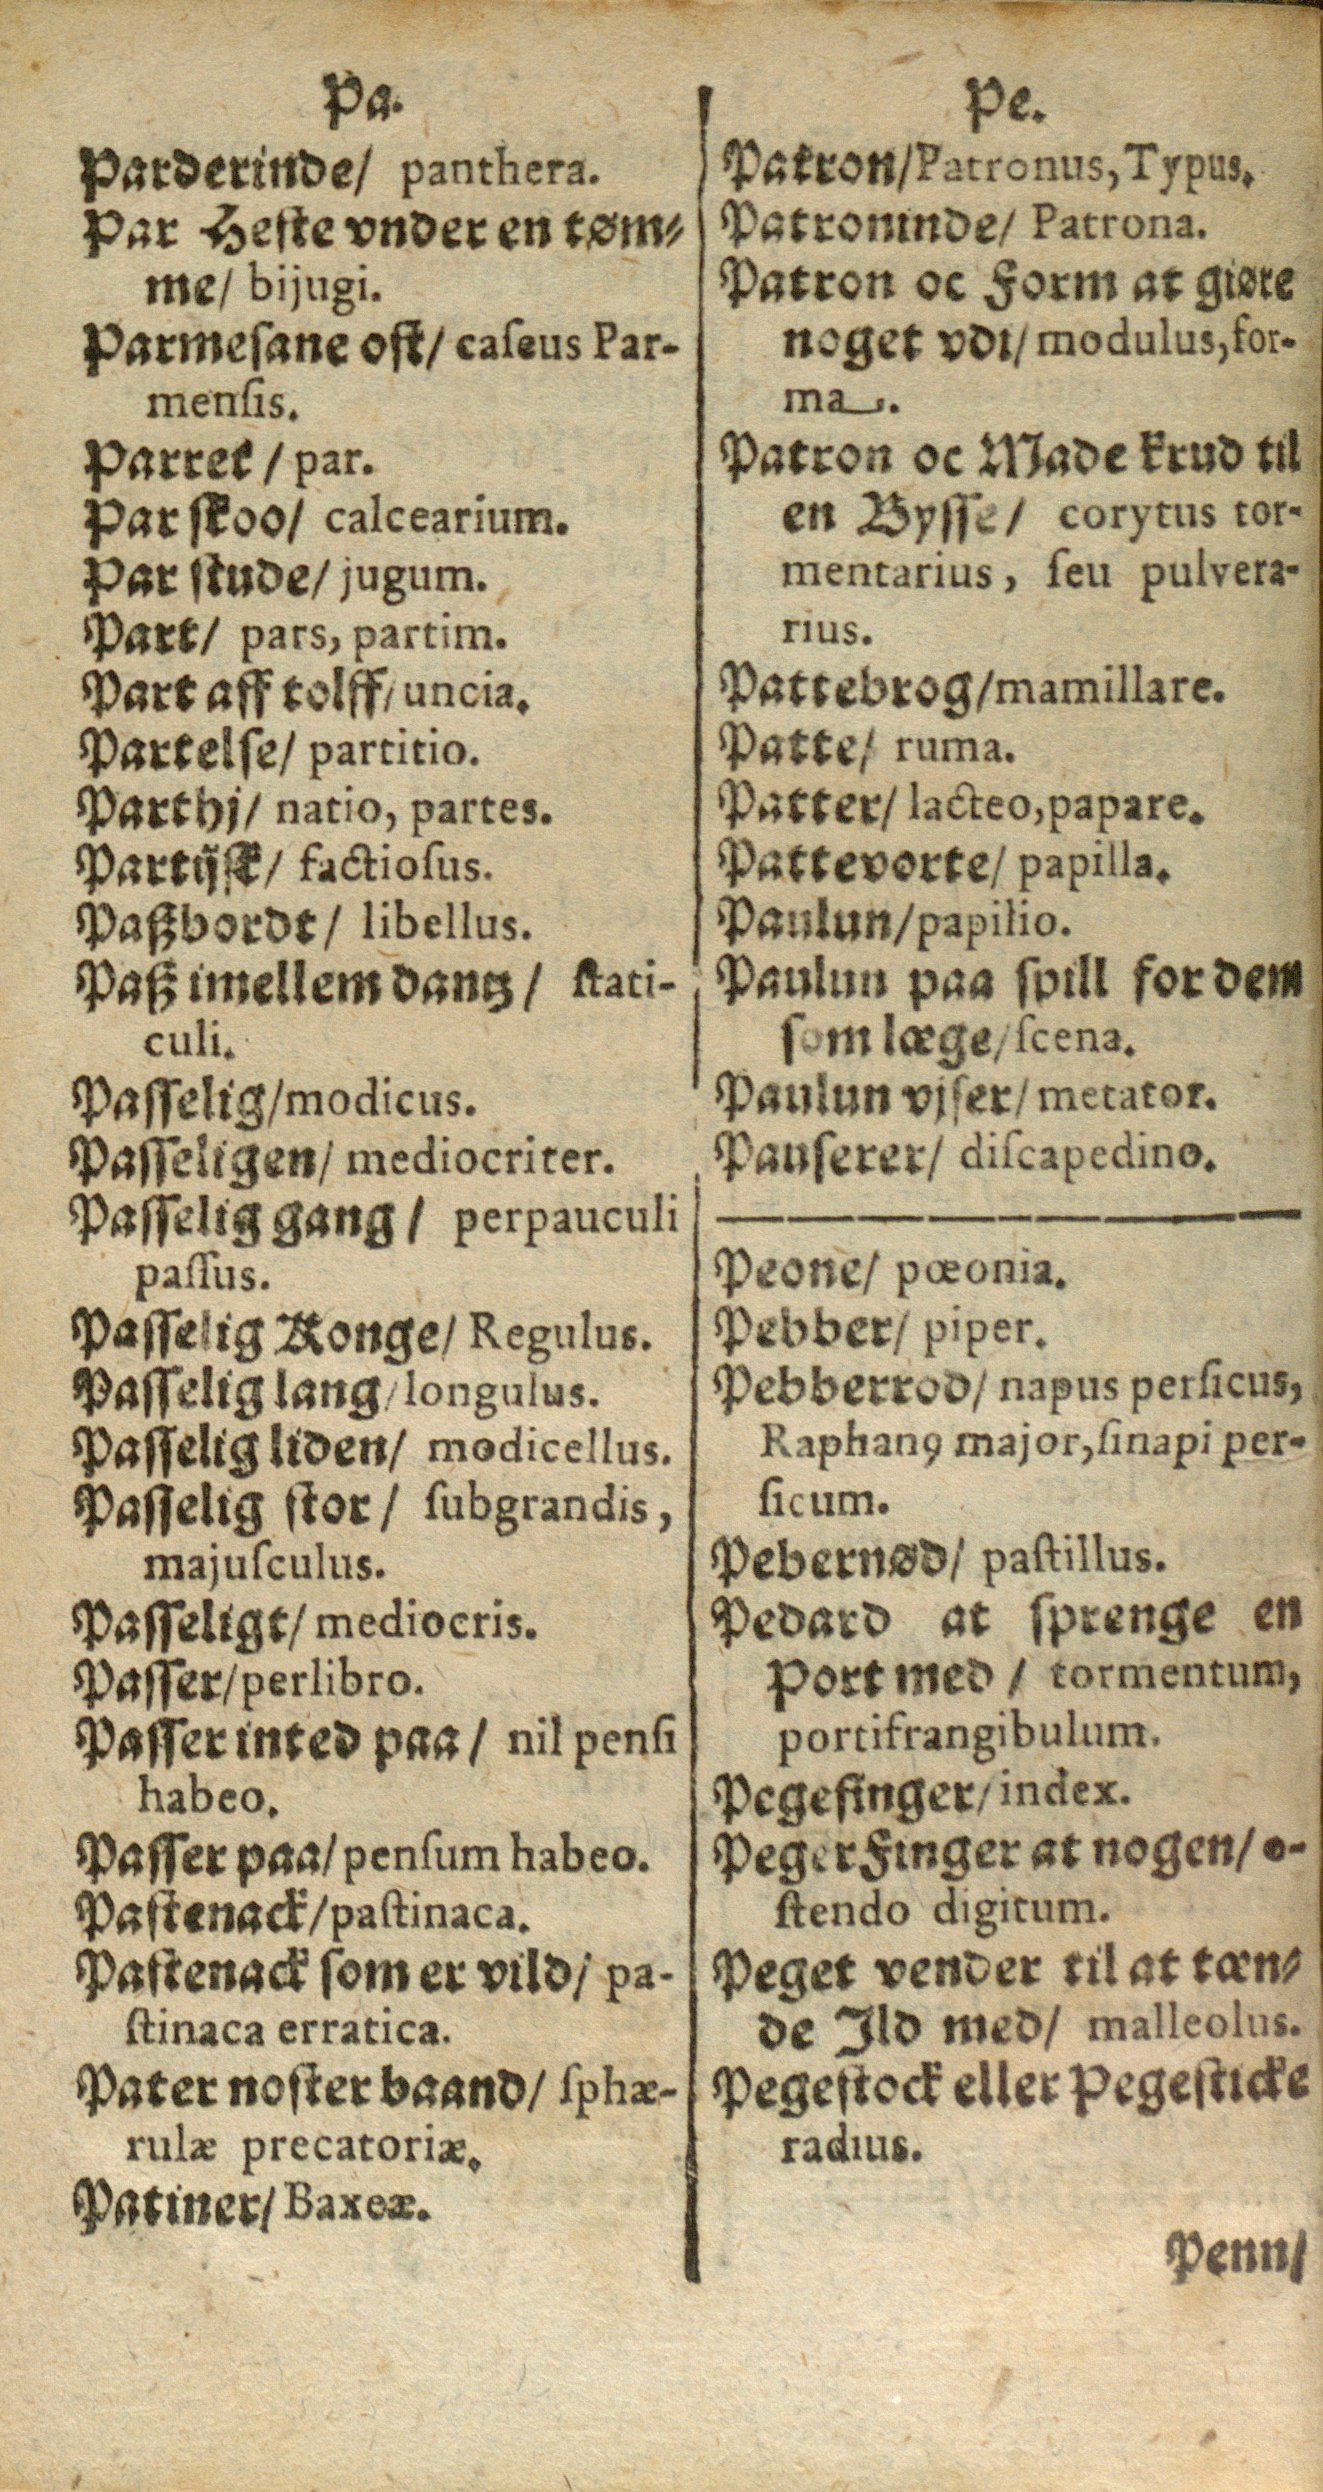 Pa.
Parderinde/ panthera.
Par Heſte vnder en tøm⸗
me/ bijugi.
Parmeſane oſt/ caſeus Par-
menſis.
Parret / par.
Par ſkoo/ calcearium.
Par ſtude/ jugum.
Part/ pars, partim.
Part aff tolff/ uncia.
Partelſe/ partitio.
Parthj/ natio, partes.
Partijſk/ factioſus.
Paßbordt/ libellus.
Paß imellem dantz/ ſtati-
culi.
Paſſelig/modicus.
Paſſeligen/ mediocriter.
Paſſelig gang / perpauculi
paſſus.
Paſſelig Konge/ Regulus.
Paſſelig lang/longulus.
Paſſelig liden/ modicellus.
Paſſelig ſtor/ ſubgrandis,
majuſculus.
Paſſeligt/ mediocris.
Paſſer/perlibro.
Paſſer inted paa / nil penſi
habeo.
Paſſer paa/ penſum habeo.
Paſtenack/paſtinaca.
Paſtenack ſom er vild/ pa-
ſtinaca erratica.
Pater noſter baand/ ſphæ-
rulæ precatoriæ.
Patiner/ Baxeæ.
Pe.
Patron/Patronus, Typus.
Patroninde/ Patrona.
Patron oc Form at giøre
noget vdi/ modulus, for-
ma.
Patron oc Made krud til
en Byſſe/ corytus tor-
mentarius, ſeu pulvera-
rius.
Pattebrog/mamillare.
Patte/ ruma.
Patter/ lacteo,papare.
Pattevorte/ papilla.
Paulun/papilio.
Paulun paa ſpill for dem
ſom læge/ſcena.
Paulun vjſer/ metator.
Pauſerer/ diſcapedino.
Peone/ pœonia.
Pebber/ piper.
Pebberrod/ napus perſicus,
Raphanꝰ major, ſinapi per-
ſicum.
Pebernød/ paſtillus.
Pedard at ſprenge en
Port med / tormentum,
portifrangibulum.
Pegefinger/index.
Peger Finger at nogen/ o-
ſtendo digitum.
Peget vender til at tæn⸗
de Ild med/ malleolus.
Pegeſtock eller Pegeſticke
radius.
Penn/